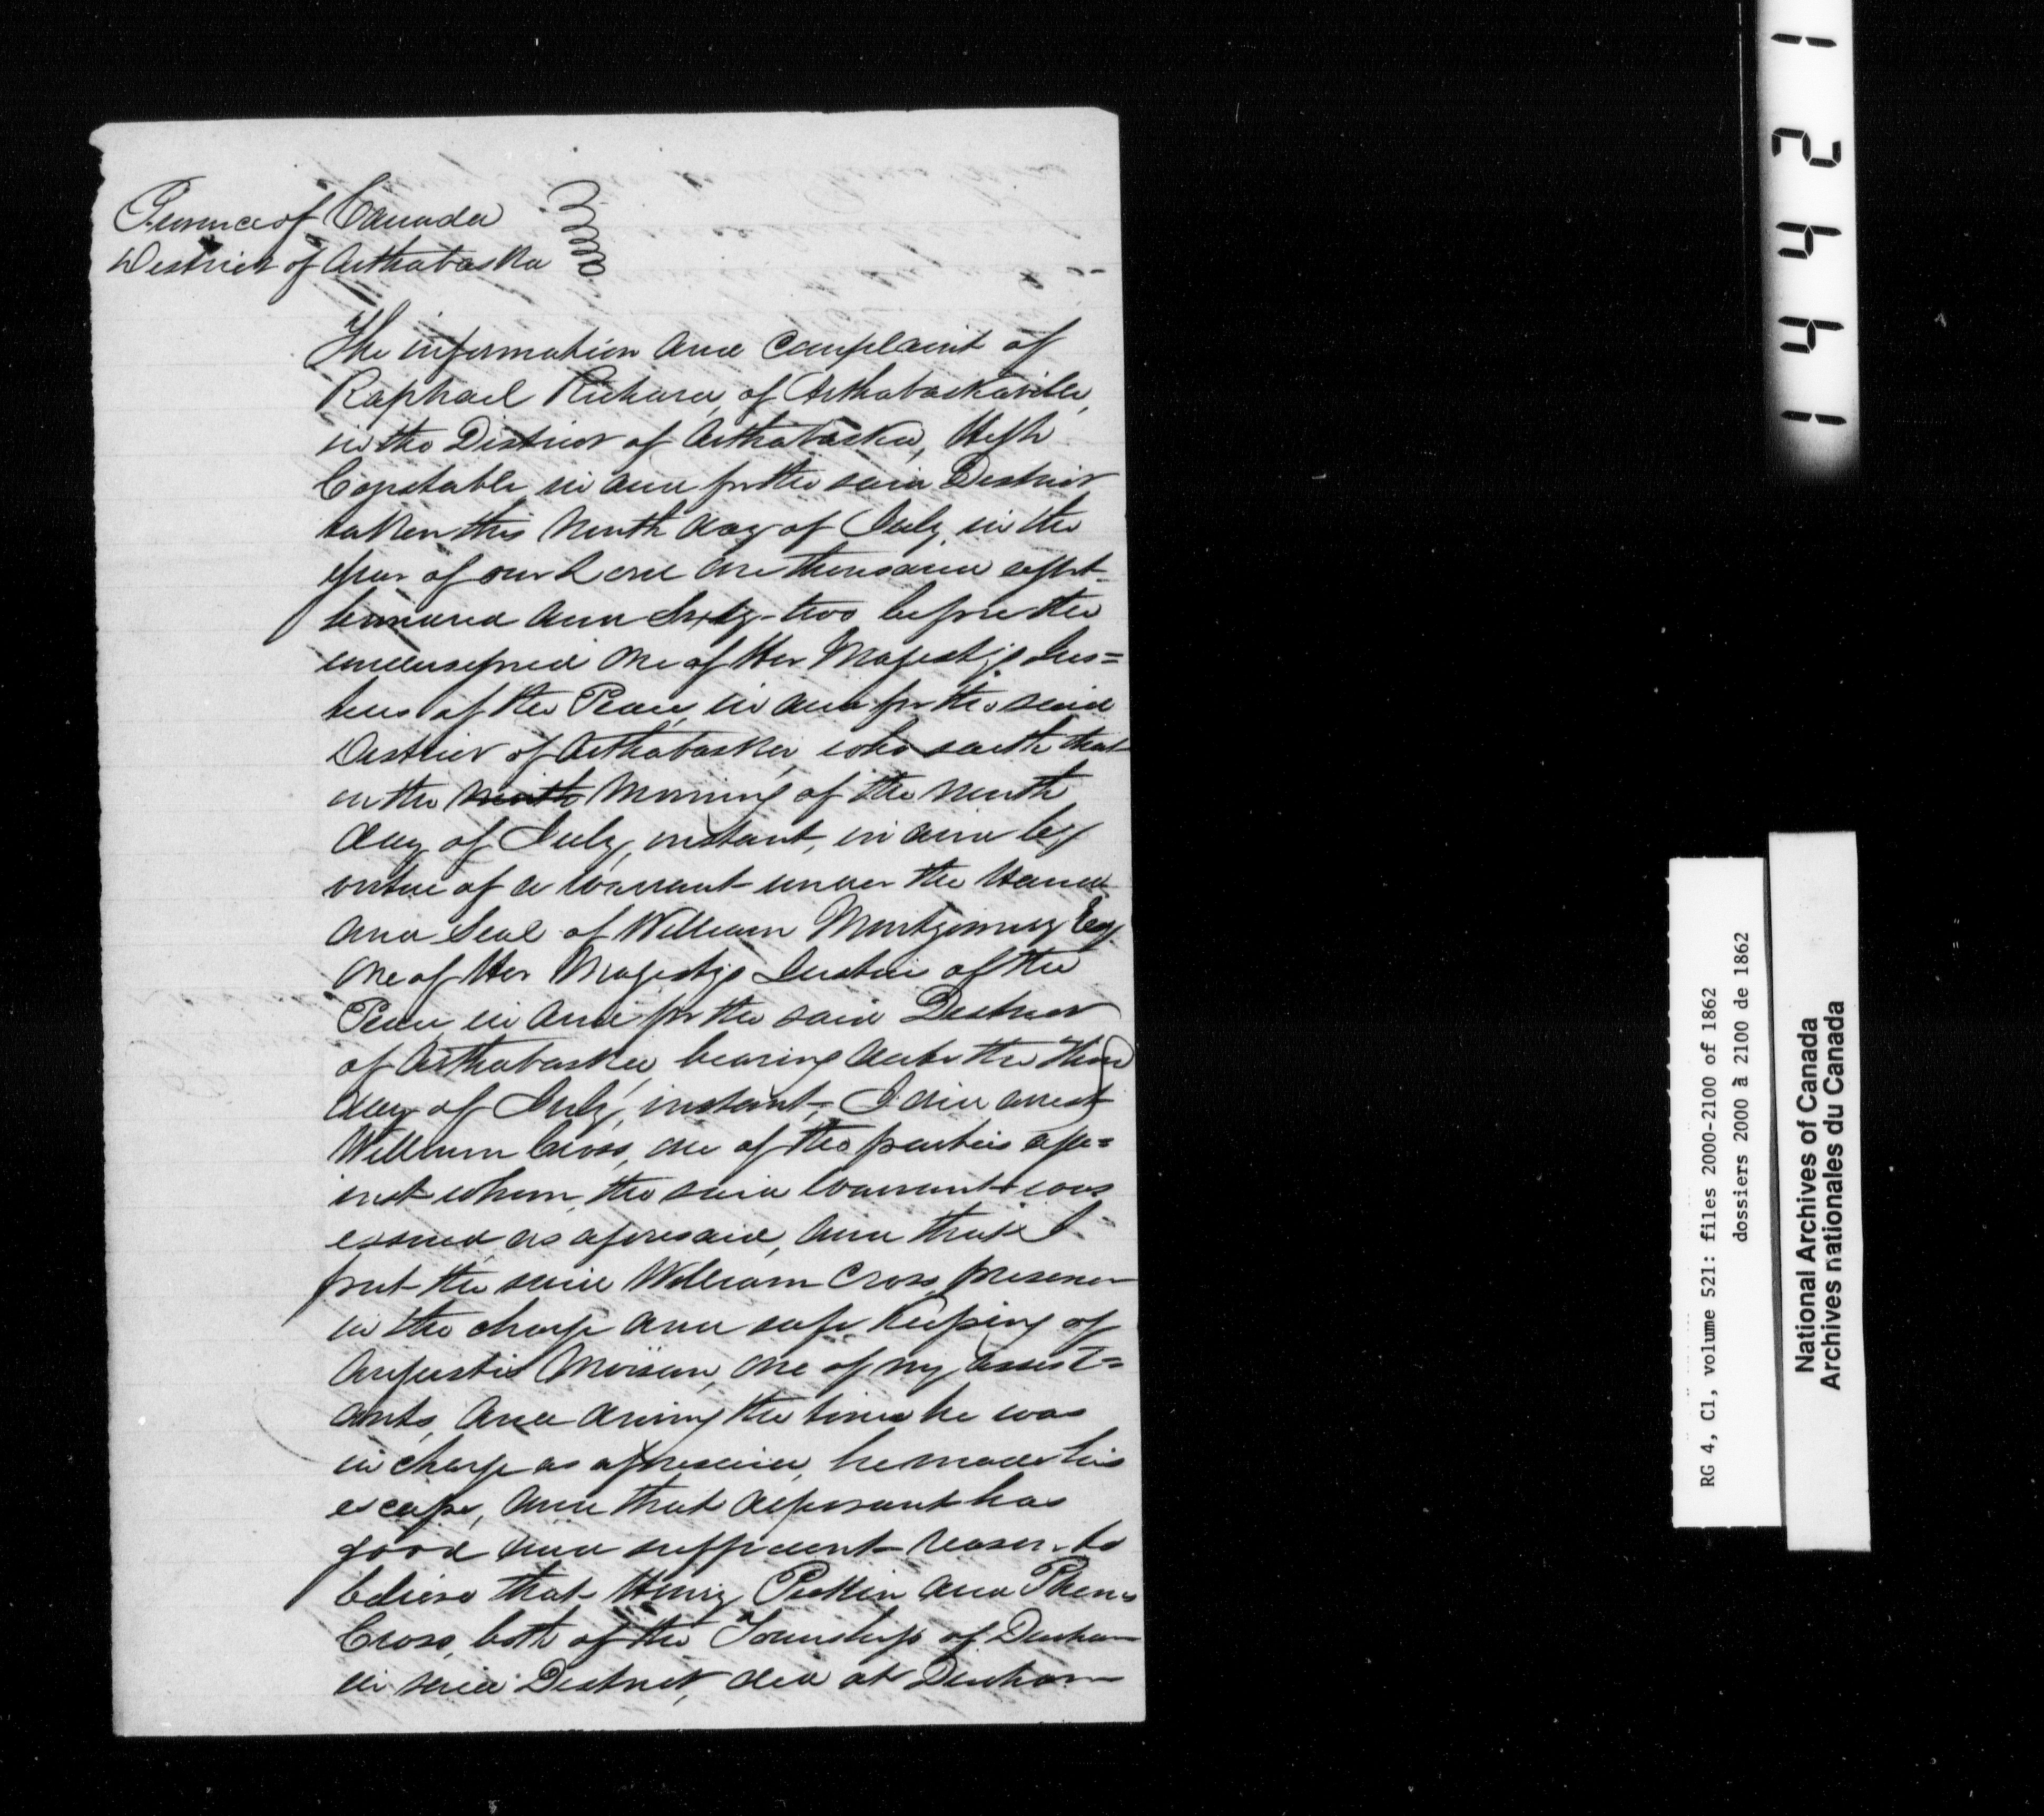 Province of Canada
District of Arthabaska
The information and complaint of
Raphael Richard, of Arthabaskaville,
in the District of Arthabaska, High
Constable in and for the said District
taken this ninth day of July, in the
year of our Lord one thousand eight
hundred and sixty-two before the
undersigned one of Her Majestys Jus=
tices of the Peace, in and for the said
District of Arthabaska, who saith that
on the ninth morning of the ninth
day of July, instant, in and by
virtue of a warrant under the Hand
and Seal of William Montgomery Esq
one of Her Majestys Justice of the
Peace in and for the said District
of Arthabaska, bearing date the third
day of July, instant, I did arrest
William Cross, one of the parties aga=
inst whom, the said warrant was
issued, as aforesaid, and that I
put the said William Cross, prisoner
in the charge and safe keeping of
Augustin Moisan, one of my assist=
ants, and during the time he was
in charge as aforesaid, he made his
escape, and that deponant has
good and sufficient reason to
believe that Henry Perkin and
Cross, both of the Township of Durham
in said District, did at Durham
1 4 4 2 1
RG 4, C1, volume 521: files 2000-2100 of 1862
dossiers 2000 à 2100 de 1862
National Archives of Canada
Archives nationales du Canada